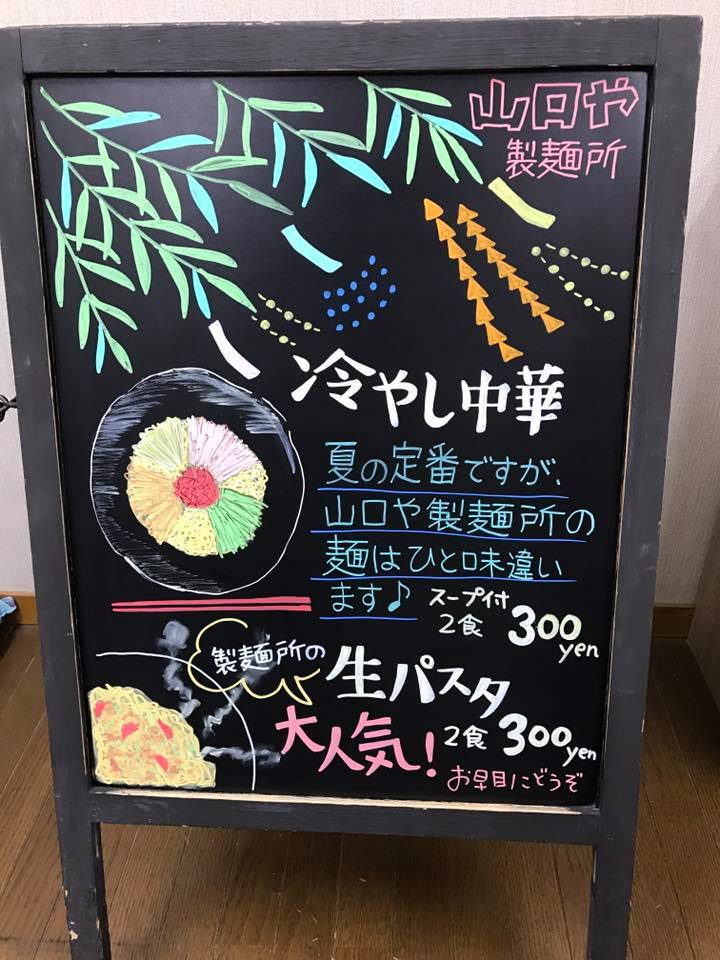 山口や
製麺所
冷やし中華
夏の定番ですが、
山口や製麺所の
麺はひと味違い
ます♪
スープ付
2食 300yen
製麺所の
生パスタ
大人気!
2食 300yen
お早目にどうぞ